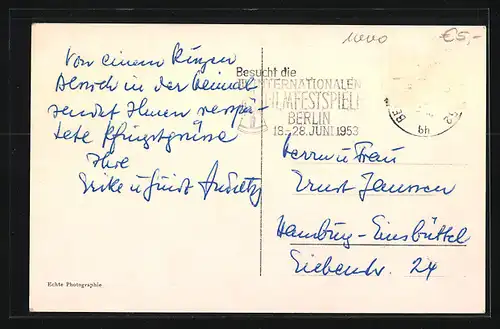 €5,-
Von einem kurzen
Besuch in der Heimat
sendet Ihnen verspä-
tete Pfingstgrüsse
Ihre
Erika u.
Besucht die
INTERNATIONALEN
FILMFESTSPIELE
BERLIN
18.-28. JUNI 1953
BE
bh
Herrn u. Frau
Ernst Janssen
Hamburg-Eimsbüttel
24
Echte Photographie